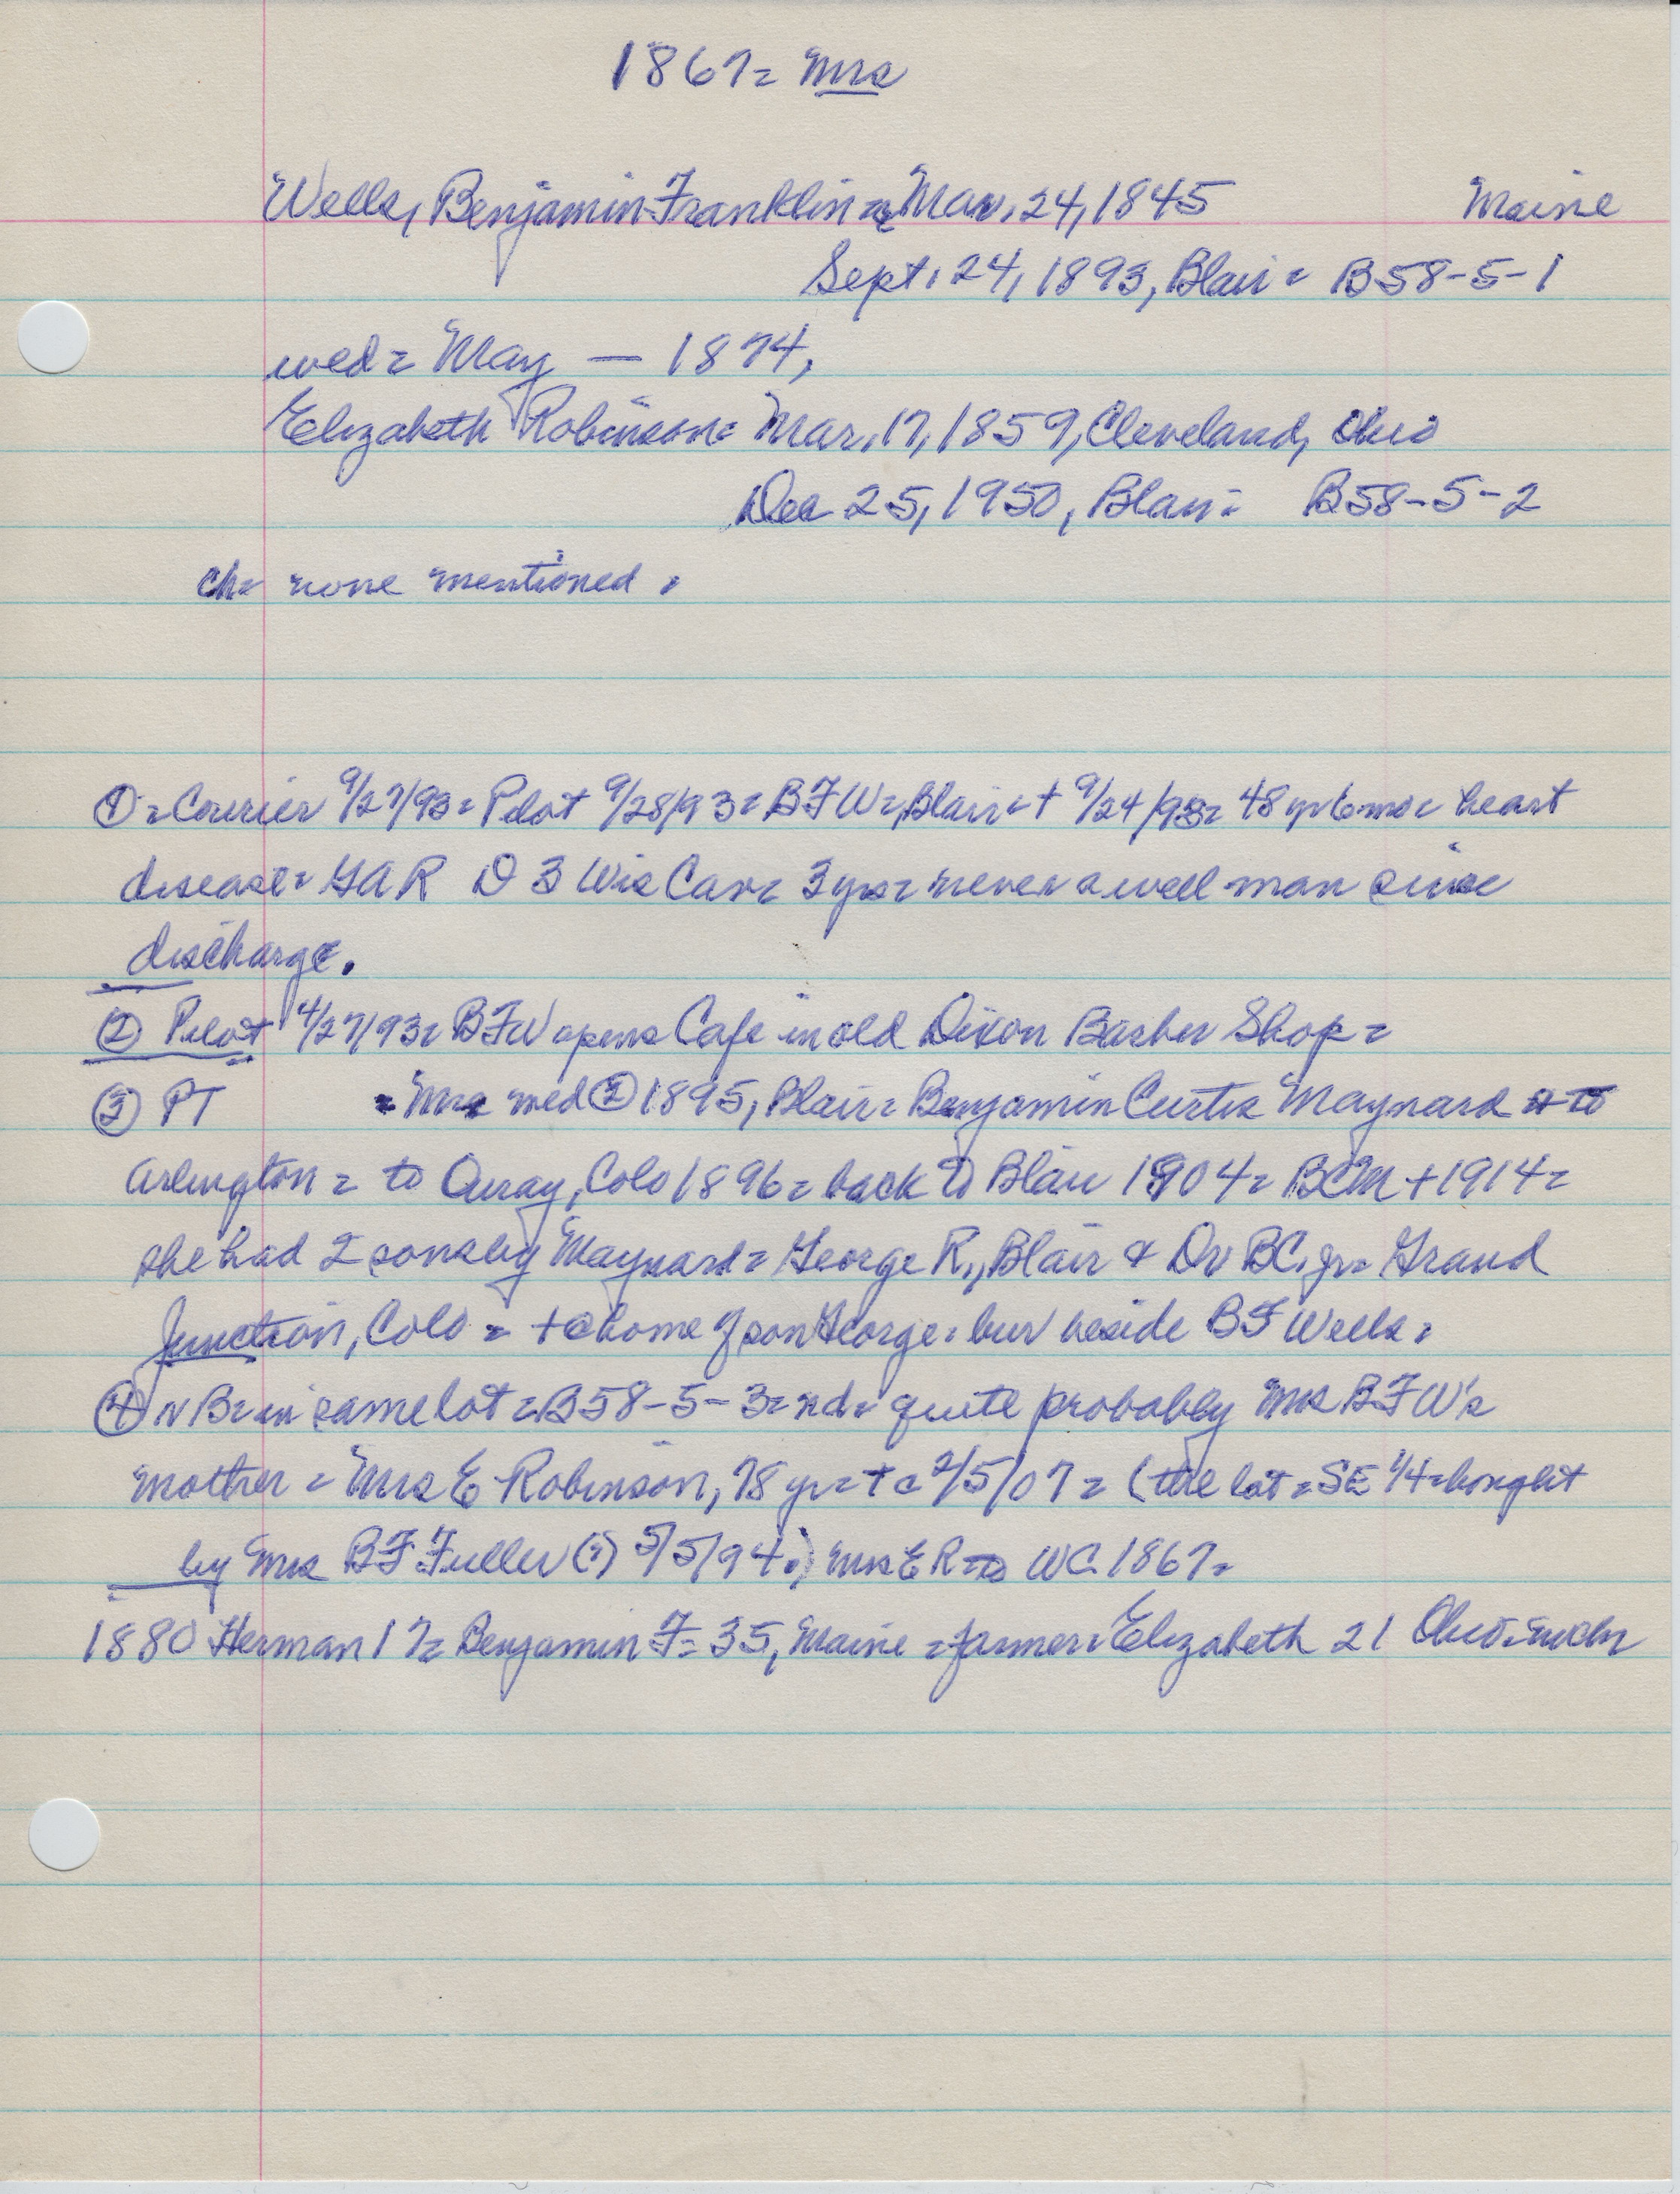 1867= Mrs
Wells, Benjamin Franklin = Mar. 24, 1845 Maine
Sept. 24, 1893, Blair = B58-5-1
wed= May — 1874,
Elizabeth Robinson= Mar. 17, 1859, Cleveland, Ohio
Dec 25, 1950, Blair= B58-5-2
ch= none mentioned.
①= Courier 9/27/93= Pilot 9/28/93= BFW=, Blair= + 9/24/93= 48 yr 6 mo= heart
disease= GAR D 3 Wis Cav= 3 yrs= never a well man since
discharge.
② Pilot 4/27/93= BFW opens Cafe in old Dixon Barber Shop=
③ PT = Mrs wed ② 1895, Blair= Benjamin Curtis Maynard = to
Arlington = to Ouray, Colo 1896= back to Blair 1904= BCM + 1914=
she had 2 sons by Maynard= George R., Blair & Dr BC. jr= Grand
Junction, Colo = + @ home of son George= bur beside BF Wells=
④ NB= in same lot = B58-5-3= nd= quite probably Mrs BFW's
mother = Mrs E Robinson, 78 yr= + c 2/5/07= (the lot = SE 1/4= bought
by Mrs BF Fuller (?) 5/5/94.) Mrs ER= to WC 1867=
1880 Herman 17= Benjamin F= 35, Maine = farmer= Elizabeth 21 Ohio=